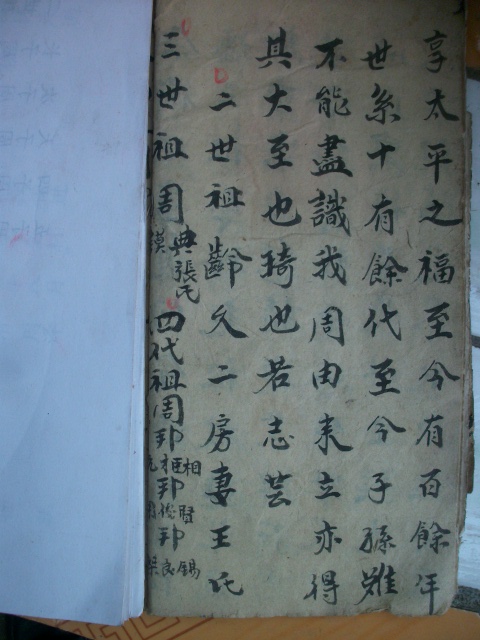 享太平之福至今有百餘年
世系十有餘代至今子孫雖
不能盡識我周由来立亦得
其大至也琦也若志芸
二世祖齡久二房妻王氏
三世祖周典張氏
四代祖周邦相
邦賢
邦錫